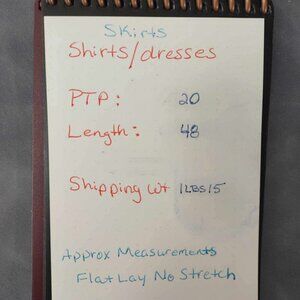 Skirts
Shirts/dresses
PTP: 20
Length: 48
Shipping wt 1LBS15
Approx Measurements
Flat Lay No Stretch